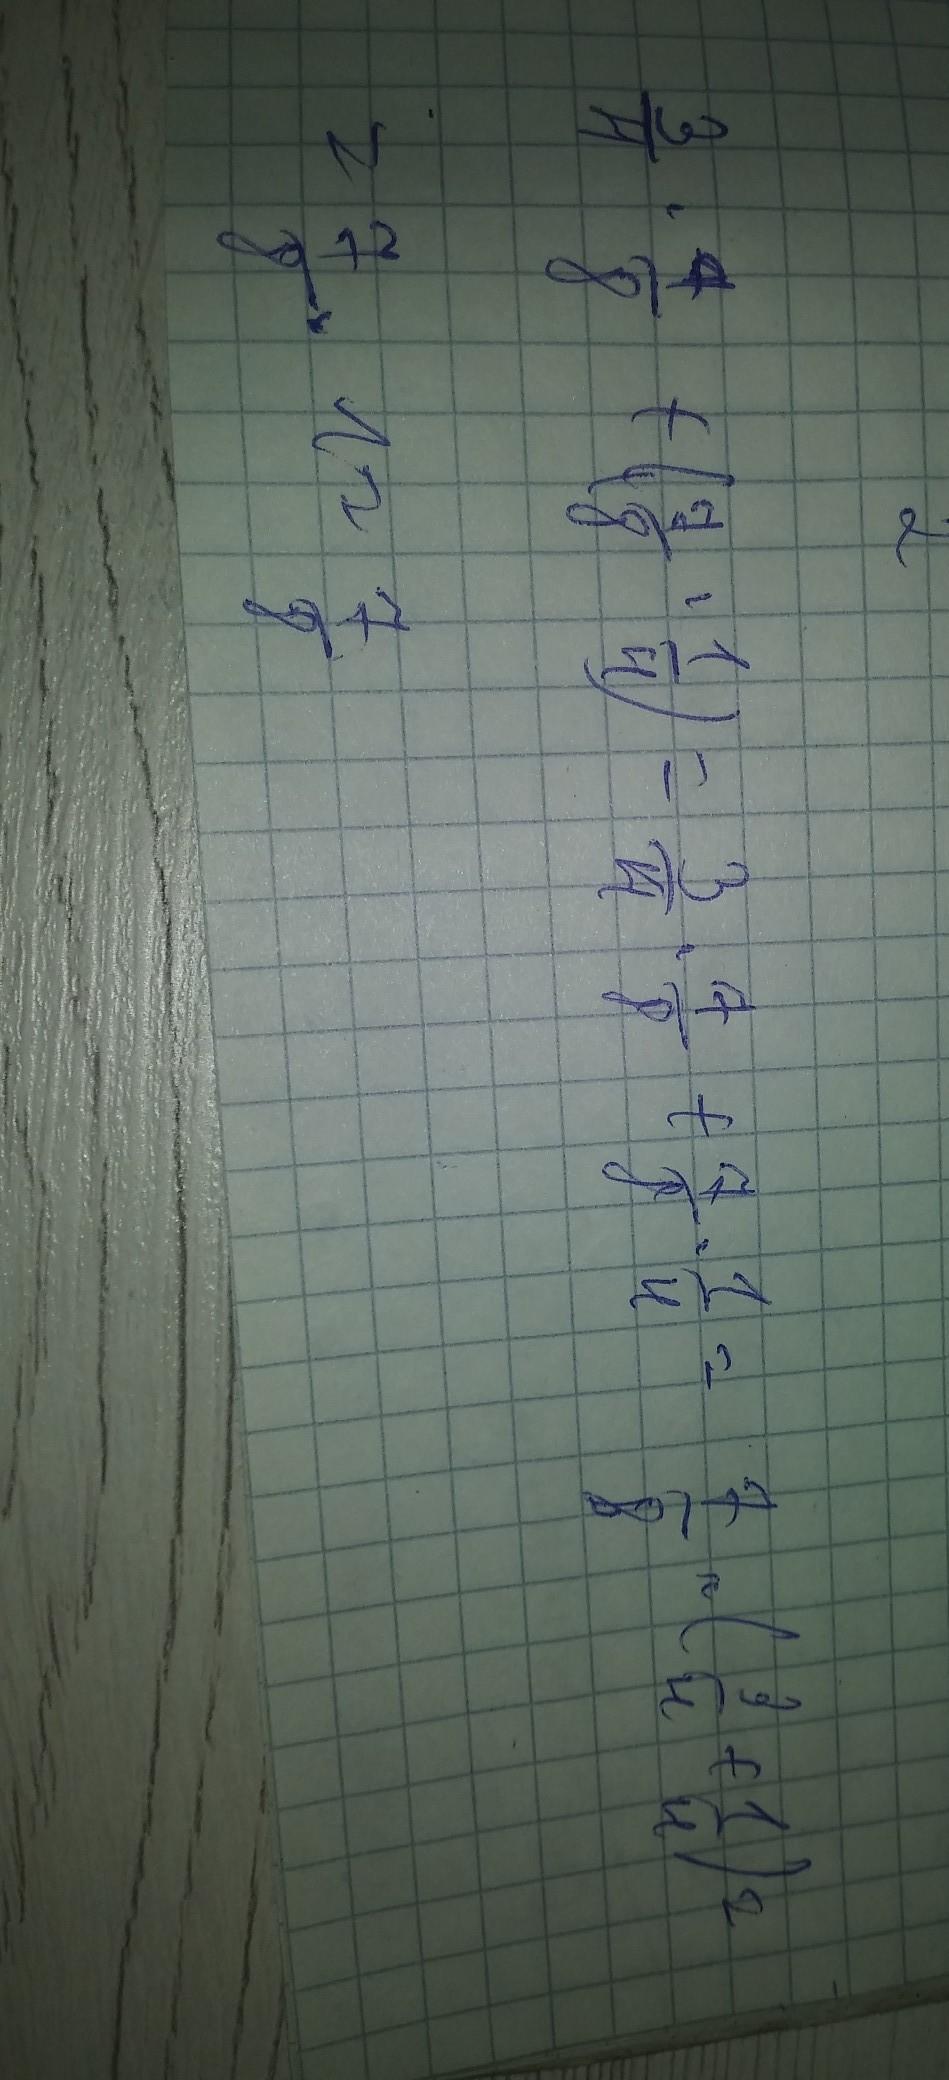 3/4 · 7/8 + (7/8 · 1/4) = 3/4 · 7/8 + 7/8 · 1/4 = 7/8 · (3/4 + 1/4) =
= 7/8 · 1 = 7/8